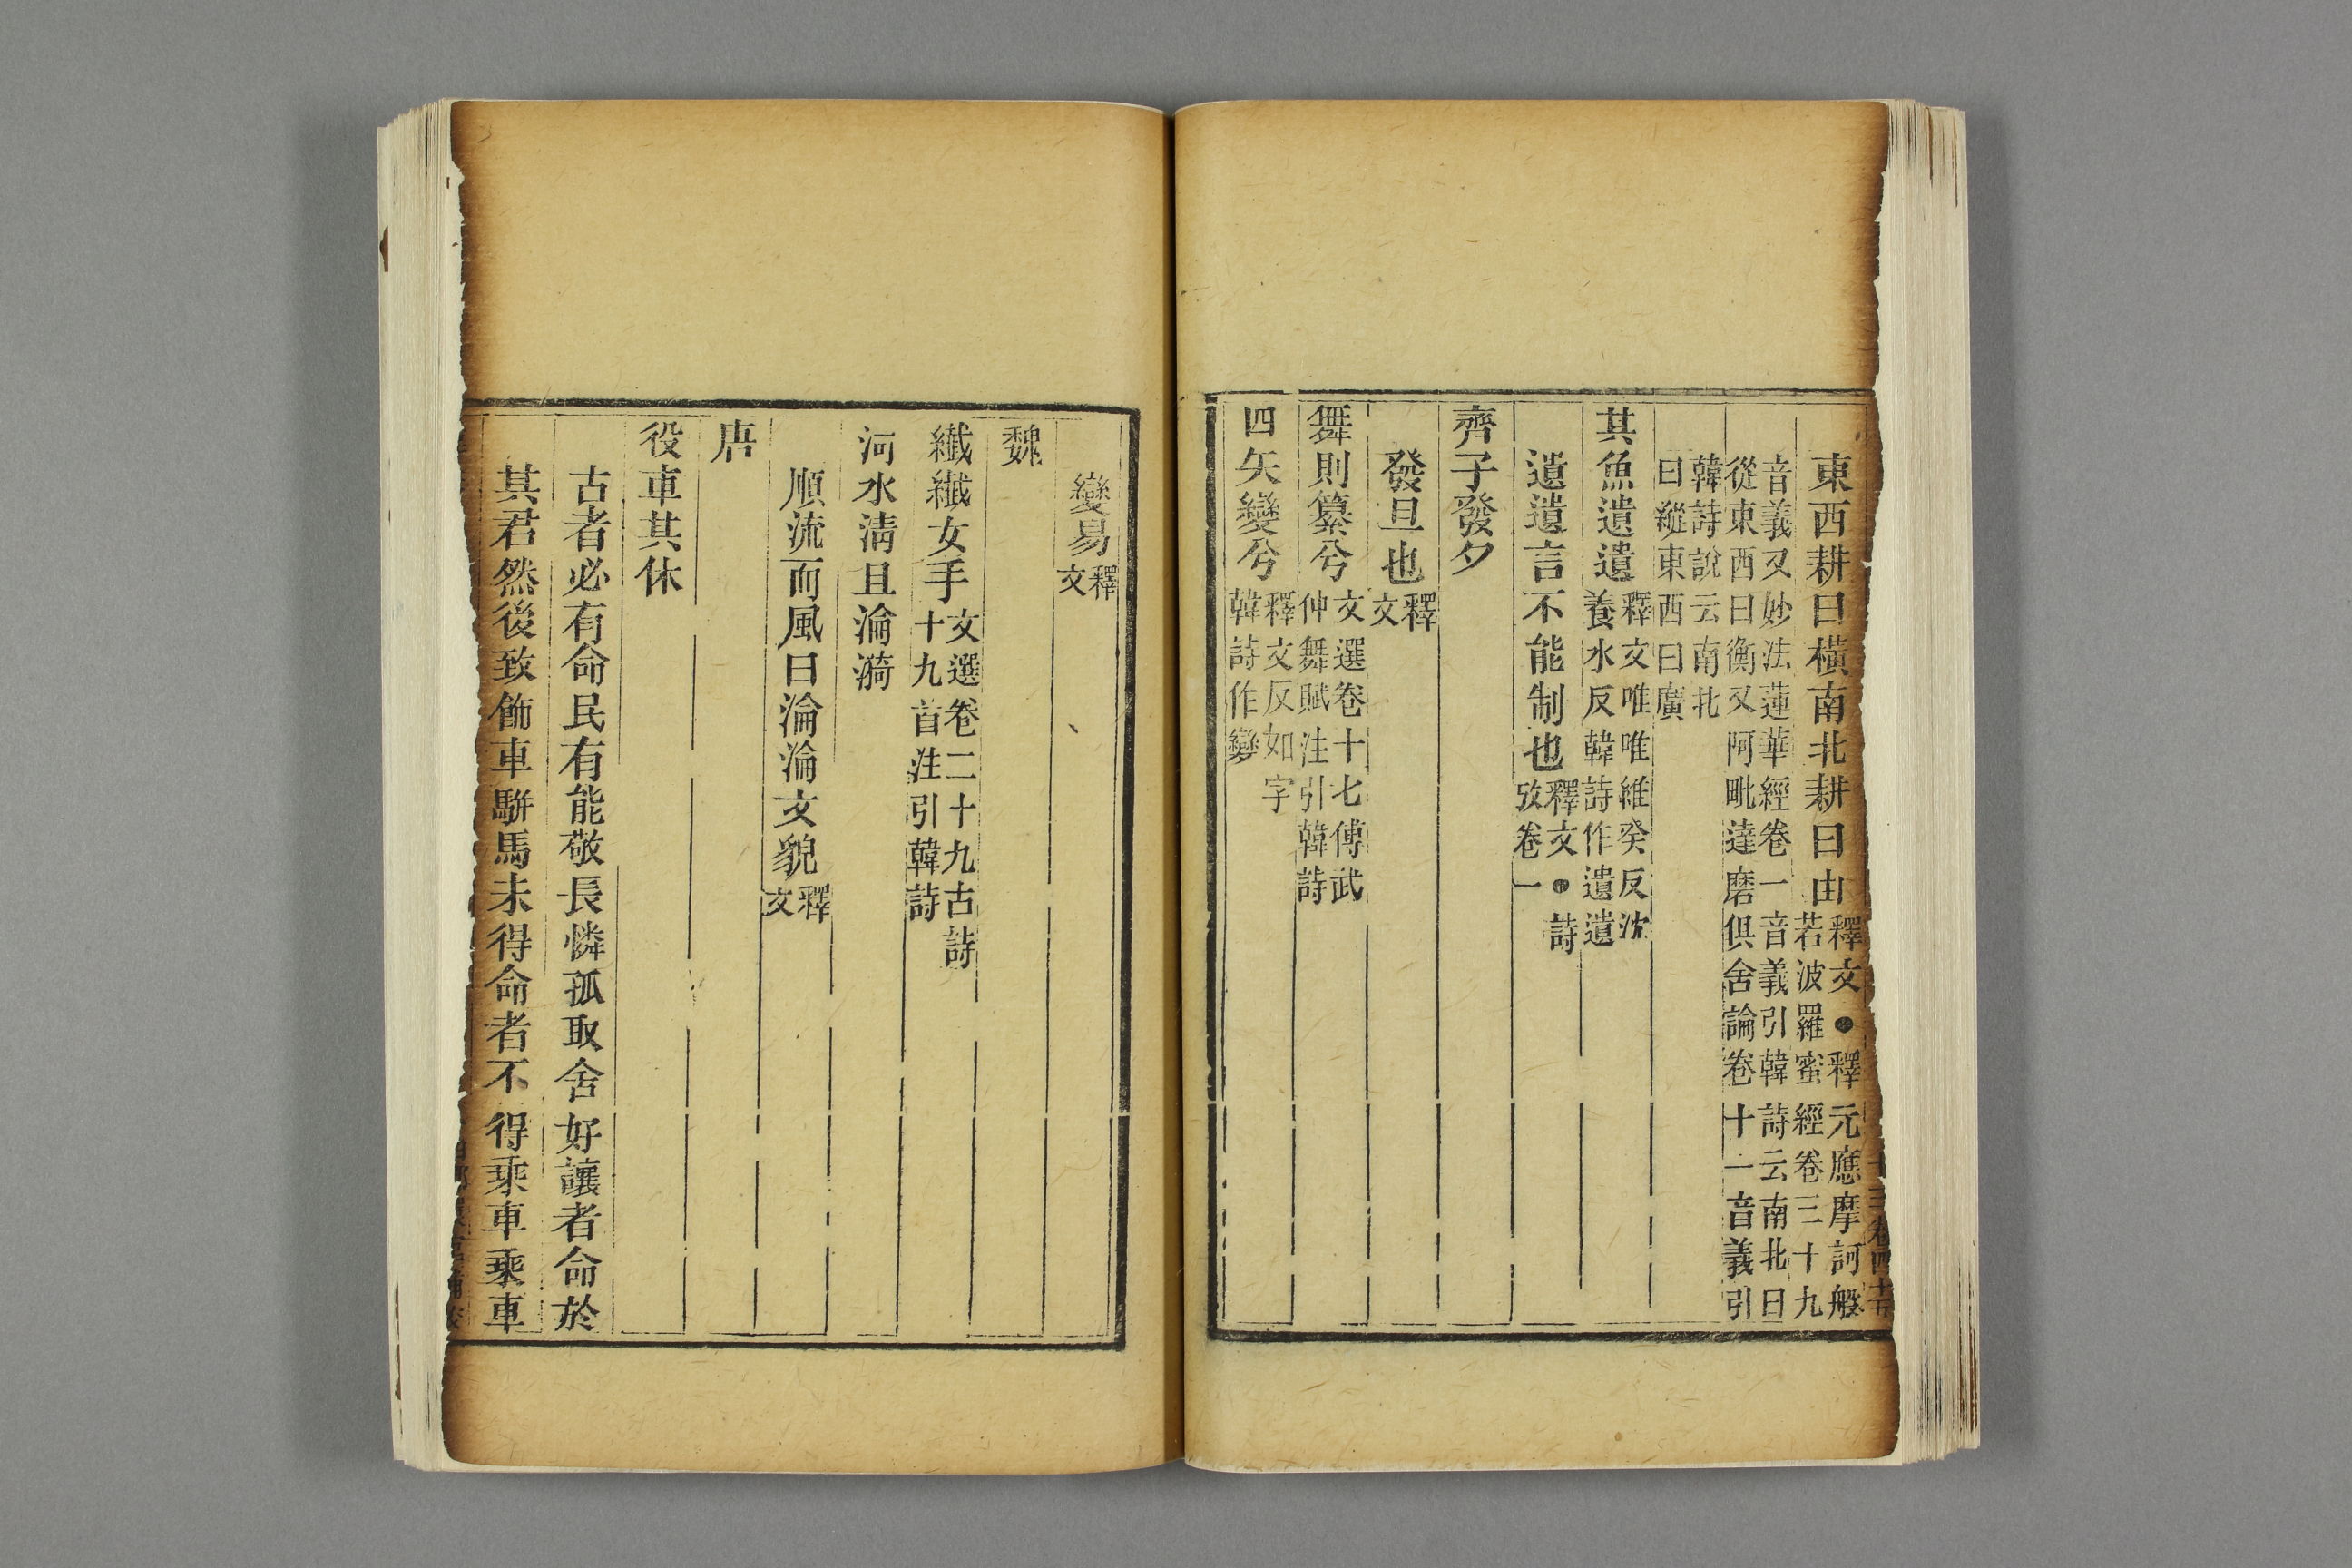 東西耕曰橫南北耕曰由釋文●釋元應摩訶般
若波羅蜜經卷三十九
音義又妙法蓮華經卷一音義引韓詩云南北曰
從東西曰衡又阿毗達磨俱舍論卷十一音義引
韓詩說云南北
曰縱東西曰廣
其魚遺遺釋文唯唯維癸反沈
養水反韓詩作遺遺
遺遺言不能制也釋文●詩
攷卷一
齊子發夕
發旦也釋
文
舞則纂兮文選卷十七傅武
仲舞賦注引韓詩
四矢變兮釋文反如字
韓詩作變
變易釋
文
魏
纖纖女手文選卷二十九古詩
十九首注引韓詩
河水淸且淪漪
順流而風曰淪淪文貌釋
文
唐
役車其休
古者必有命民有能敬長憐孤取舍好讓者命於
其君然後致飾車騈馬未得命者不得乘車乘車